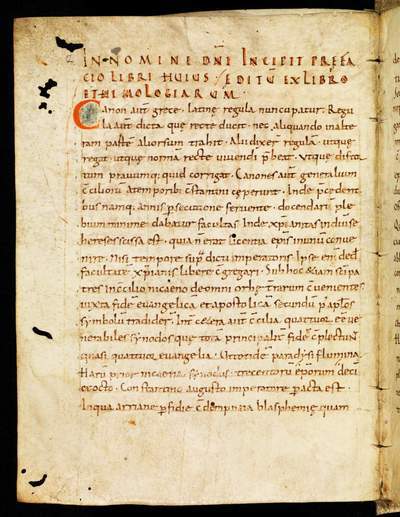 IN NOMINE DNI INCIPIT PREFA
CIO LIBRI HUIUS, EDITU EX LIBRO
ETHIMOLOGIARUM
Canon aut grece. latine regula nuncupatur. Regu
la aut dicta que recte ducit. nec aliquando in alte
ram parte aliorsum trahit. Alii dixer regula. ut que
regat. ut que norma recte vivendi p beat. Ut que distor
tum pravumq; quid corrigat. Canones aut generalium
ciliorū a temporib; cstantini ceperunt. Inde pcedent
bus namq; annis psecutione fervente. docendarū ple
bium minime dabatur facultas. Inde xpianitas in diverse
hereses scissa est. quia n erat licentia epis in unū conve
nire. Nisi tempore sup dicti imperatoris. Ipse eni ded
facultate xpianis libere cgregari. Sub hoc etiam sci pa
tres in cilio niceno de omni orbe trarum cvenientes
iuxta fide evangelica et apostolica secundū p aplos
symbolū tradider. Int cetera aut cilia. quattuor ee ve
nerabiles synodos que tota principalit fide cplectunt
quasi quattuor evangelia. vel totide paradysi flumina.
Harū prior nicena synodus. trecentorū eporum deci
et octo. Constantino augusto imperatore pacta est.
In qua arriane pfidie cdempnata blasphemie. quam